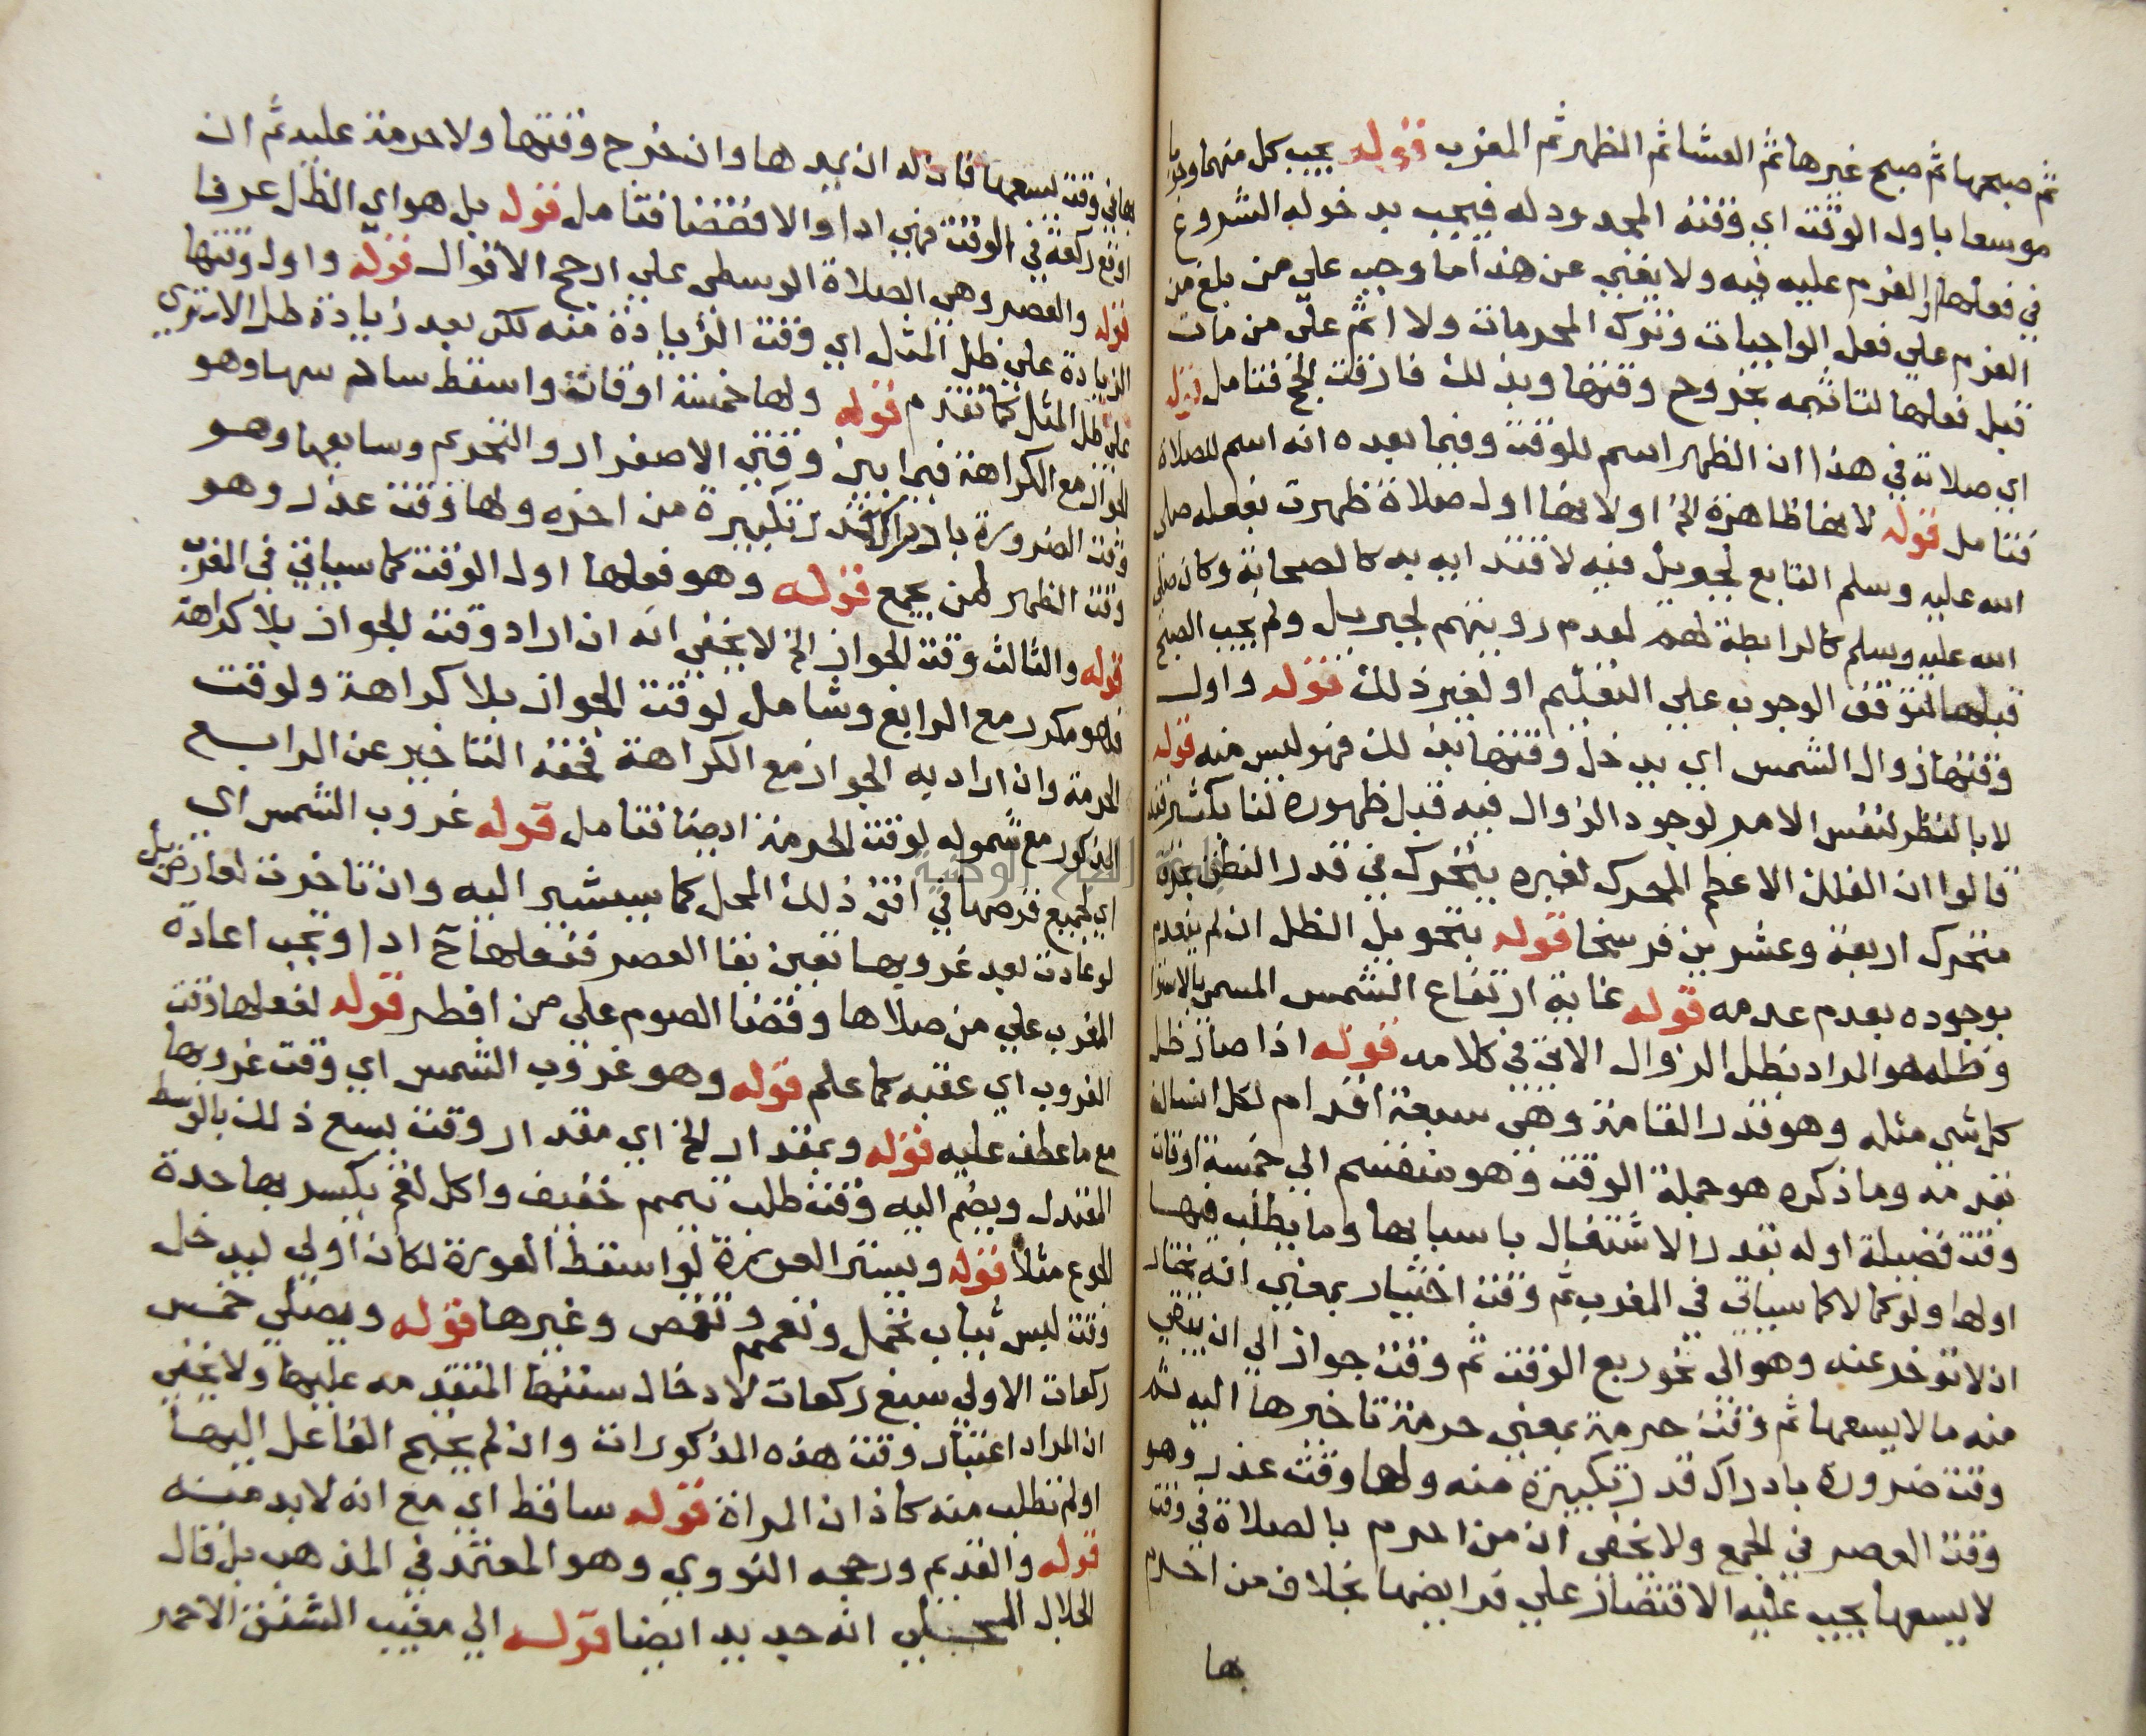 ثم صبحها ثم صبح غيرها ثم العشا ثم الظهر ثم المغرب قوله يجب كل منهما وجوبا
موسعا باول الوقت اي وقته المحدود له فيجب بدخوله الشروع
في فعلها او العزم عليه فيه ولا يغني عن هذا ما وجب علي من بلغ من
العزم علي فعل الواجبات وترك المحرمات ولا اثم علي من مات
قبل فعلها لتاثيمه بخروج وقتها وبذلك فارقت الحج فتامل قوله
اي صلاته في هذا ان الظهر اسم للوقت وفيما بعده انه اسم للصلاة
فتامل قوله لانها ظاهرة الخ او لانها اول صلاة ظهرت بفعله صلي
الله عليه وسلم التابع لجبريل فيه لاقتدايه به كالصحابة وكان صلي
الله عليه وسلم كالرابطة لهم لعدم رويتهم لجبريل ولم يجب الصبح
قبلها لتوقف الوجوب علي التعليم او لغير ذلك قوله واول
وقتها زوال الشمس اي يدخل وقتها بذلك فهو ليس منه قوله
لا بالنظر لنفس الامر لوجود الزوال فيه قبل ظهوره لنا بكثير فقد
قالوا ان الفلك الاعظم المحرك لغيره يتحرك في قدر النطق بحرف
متحرك اربعة وعشرين فرسخا قوله بتحويل الظل ان لم ينعدم
بوجوده بعدم عدمه قوله غاية ارتفاع الشمس المسمي بالاستوا
وظله هو المراد بظل الزوال الاتي في كلامه قوله اذا صار ظل
كل شي مثله وهو قدر القامة وهي سبعة اقدام لكل انسان
بقدمه وما ذكره هو جملة الوقت وهو منقسم الي خمسة اوقات
وقت فضيلة اوله بقدر الاشتغال باسبابها وما يطلب فيها
اولها ولو كمالا كما سياتي في المغرب ثم وقت اختيار بمعني انه يختار
ان لا توخر عنه وهو الي نحو ربع الوقت ثم وقت جواز الي ان يبقي
منه ما لا يسعها ثم وقت حرمة بمعني حرمة تاخيرها اليه ثم
وقت ضرورة بادراك قدر تكبيرة منه ولها وقت عذر وهو
وقت العصر في الجمع ولا يخفي ان من احرم بالصلاة في وقت
لا يسعها يجب عليه الاقتصار علي فرايضها بخلاف من احرم
بها
بها في وقت يسعها فان له ان يمدها وان خرج وقتها ولا حرمة عليه ثم ان
اوقع ركعة في الوقت فهي ادا والا فقضا فتامل قوله بل هو اي الظل عرفا
قوله والعصر وهي الصلاة الوسطي علي ارجح الاقوال قوله واول وقتها
الزيادة علي ظل المثل اي وقت الزيادة منه لكن بعد زيادة ظل الاستوي
علي ظل المثل كما تقدم قوله ولها خمسة اوقات واسقط سادسها وهو
الجواز مع الكراهة فيما بين وقتي الاصفرار والتحريم وسابعها وهو
وقت الضرورة بادراك قدر تكبيرة من اخره ولها وقت عذر وهو
وقت الظهر لمن يجمع قوله وهو فعلها اول الوقت كما سياتي في المغرب
قوله والثالث وقت الجواز الخ لا يخفي انه ان اراد وقت الجواز بلا كراهة
فهو مكرر مع الرابع وشامل لوقت الجواز بلا كراهة ولوقت
الحرمة وان اراد به الجواز مع الكراهة فحقه التاخير عن الرابع
المذكور مع شموله لوقت الحرمة ايضا فتامل قوله غروب الشمس اي
اي لجميع قرصها في افق ذلك المحل كما سيشير اليه وان تاخرت لعارض بل
لو عادت بعد غروبها تبين بقا العصر ففعلها ح ادا وتجب اعادة
المغرب علي من صلاها وقضا الصوم علي من افطر قوله لفعلها وقت
الغروب اي عقبه كما علم قوله وهو غروب الشمس اي وقت غروبها
مع ما عطف عليه قوله وبمقدار الخ اي مقدار وقت يسع ذلك بالوسط
المعتدل ويضم اليه وقت طلب تيمم خفيف واكل لقم يكسر بها حدة
الجوع مثلا قوله ويستر العورة لو اسقط العورة لكان اولي ليدخل
وقت لبس ثياب تجمل وتعمم وتقمص وغيرها قوله ويصلي خمس
ركعات الاولي سبع ركعات لادخال سنتها المتقدمه عليها ولا يخفي
ان المراد اعتبار وقت هذه المذكورات وان لم يحتج الفاعل اليها
او لم تطلب منه كاذان المراة قوله ساقط اي مع انه لا بد منه
قوله والقديم ورجحه النووي وهو المعتمد في المذهب بل قال
الجلال المحلي انه جديد ايضا قوله الي مغيب الشفق الاحمر